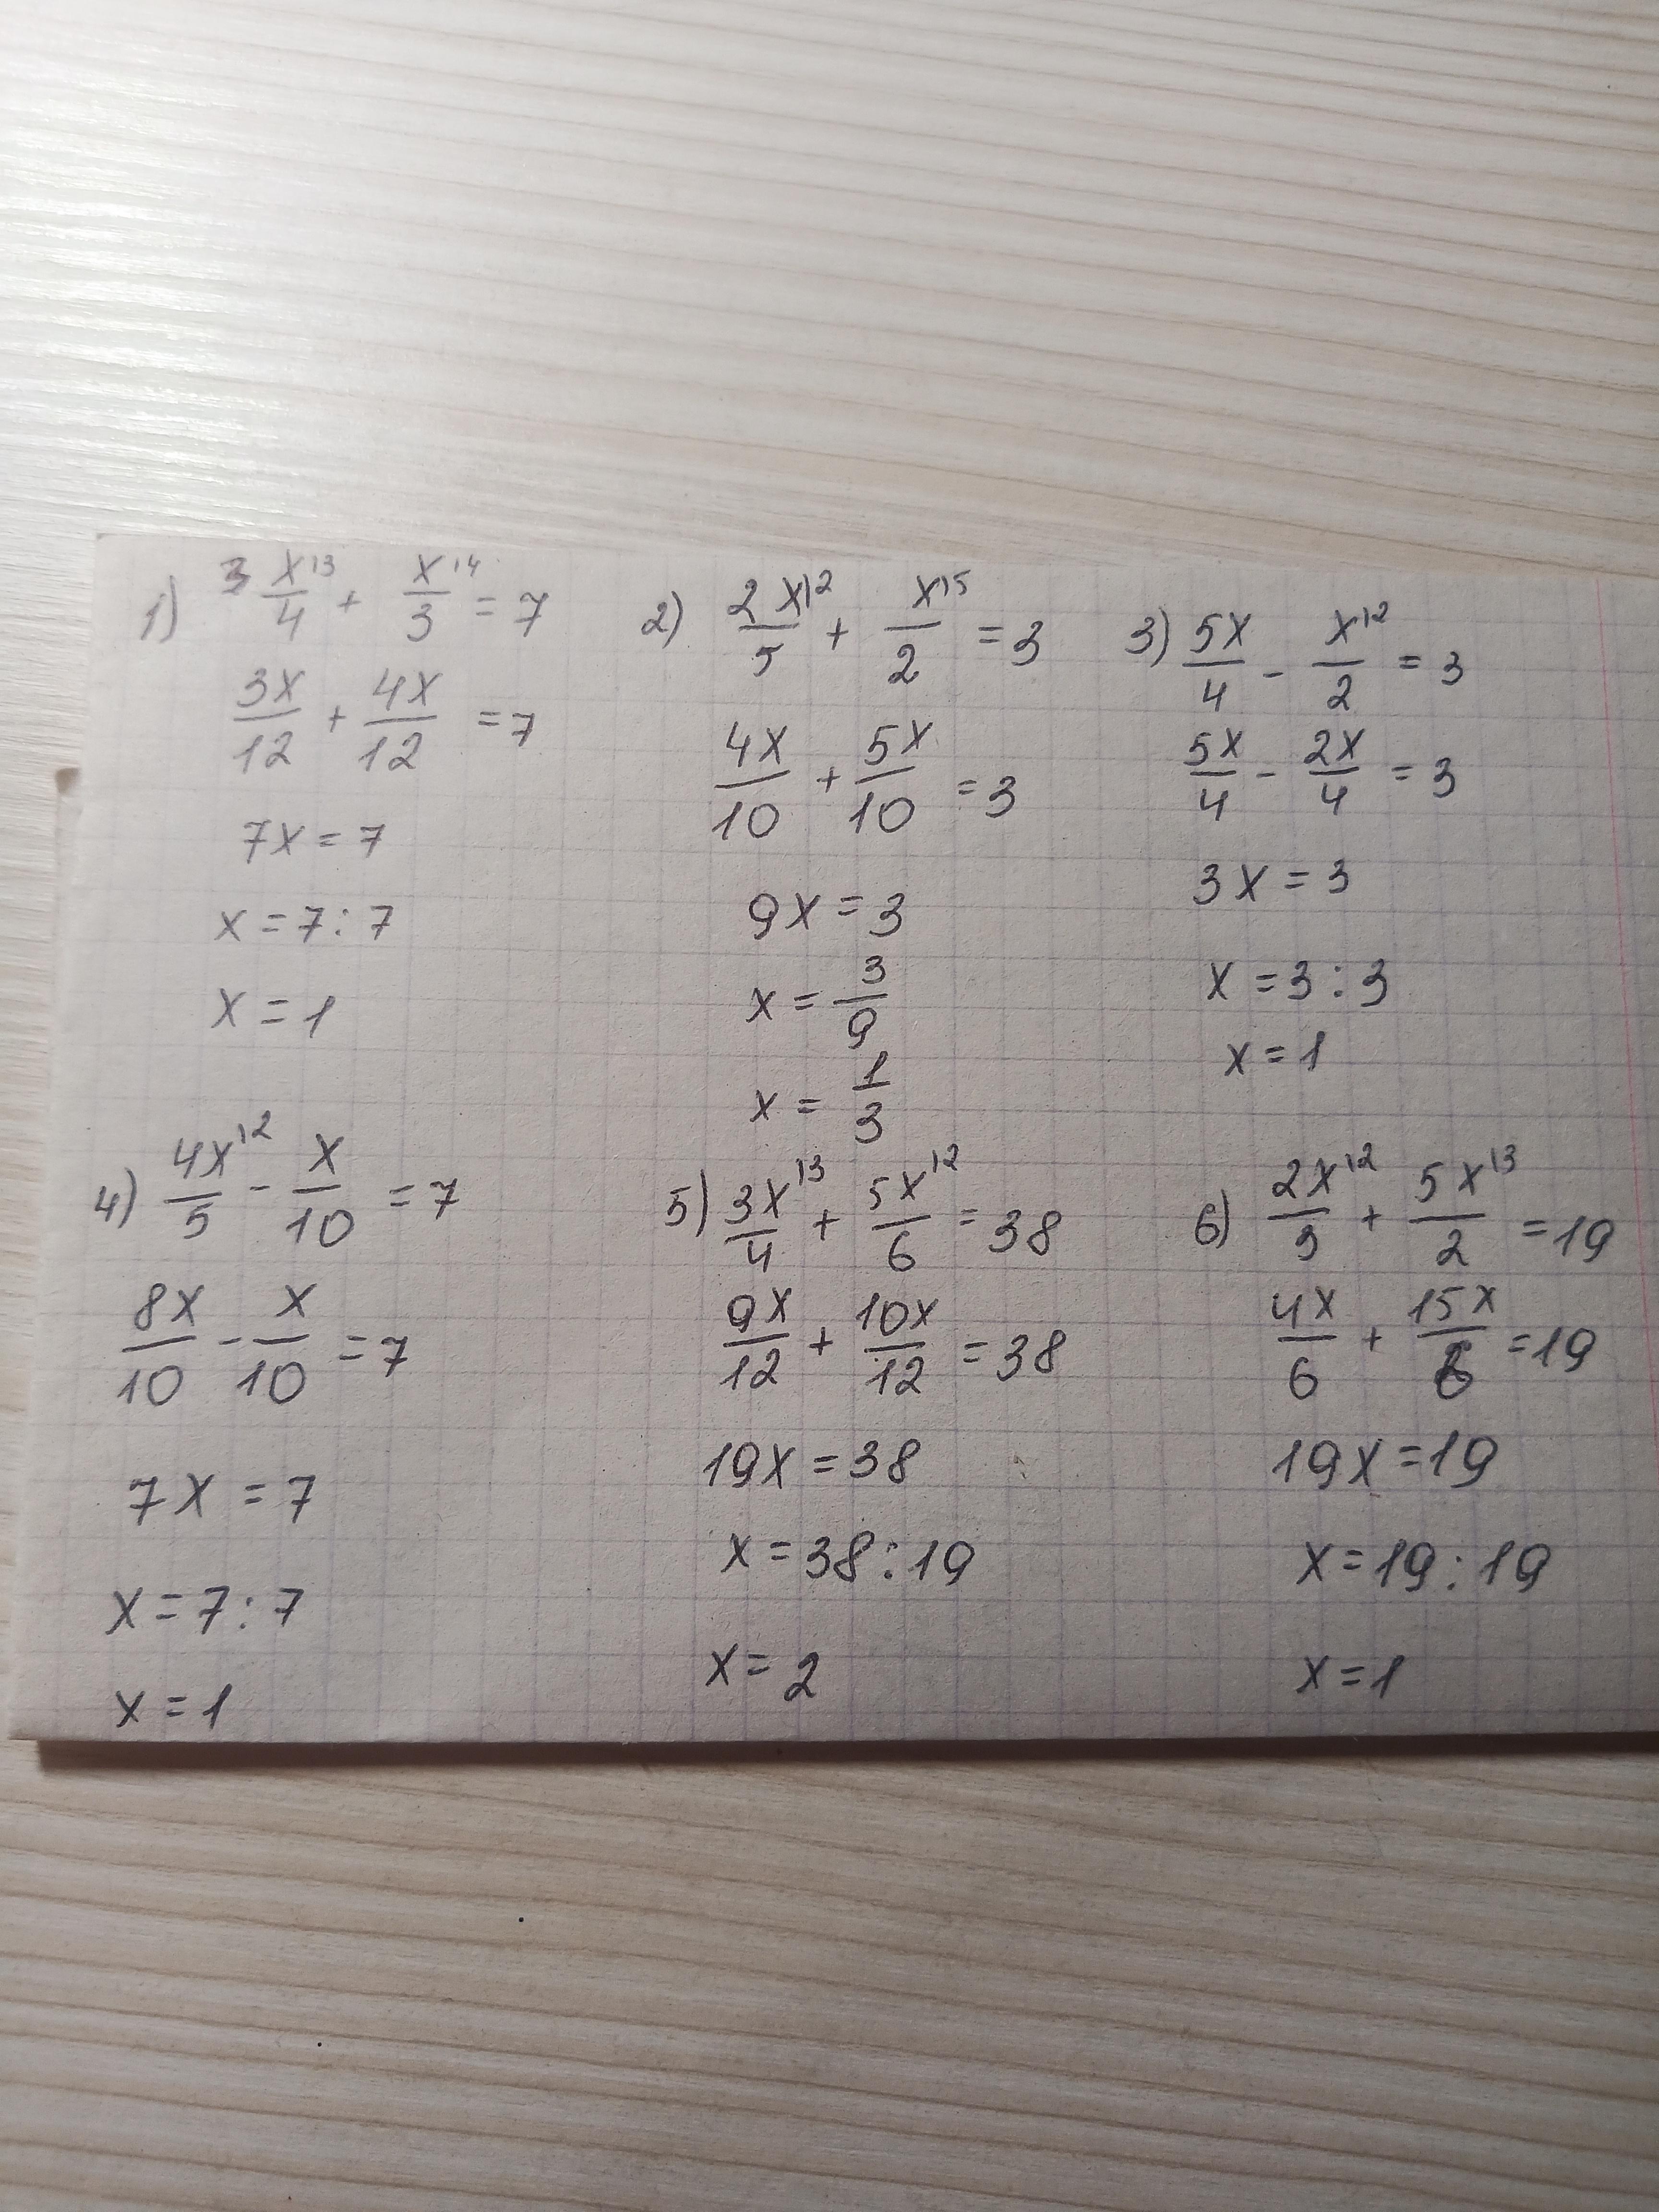 1) 3 x\3/4 + x\4/3 = 7
3x/12 + 4x/12 = 7
7x = 7
x = 7 : 7
x = 1
2) 2x\2/5 + x\5/2 = 3
4x/10 + 5x/10 = 3
9x = 3
x = 3/9
x = 1/3
3) 5x/4 - x\2/2 = 3
5x/4 - 2x/4 = 3
3x = 3
x = 3 : 3
x = 1
4) 4x\2/5 - x/10 = 7
8x/10 - x/10 = 7
7x = 7
x = 7 : 7
x = 1
5) 3x\3/4 + 5x\2/6 = 38
9x/12 + 10x/12 = 38
19x = 38
x = 38 : 19
x = 2
6) 2x\2/3 + 5x\3/2 = 19
4x/6 + 15x/6 = 19
19x = 19
x = 19 : 19
x = 1